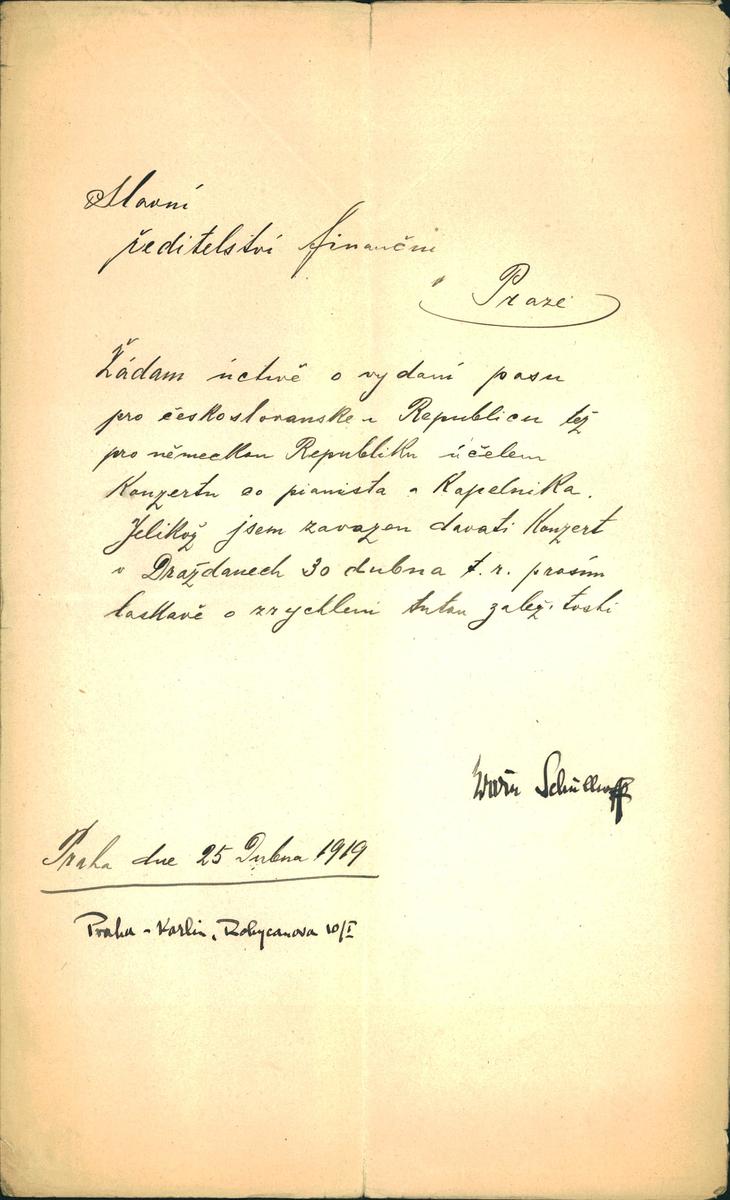 Slavní
ředitelství finanční
v Praze
Žádam úctivě o vydaní pasu
pro československou Republicu též
pro německou Republiku účelem
Konzertu co pianista a Kapelnika.
Jelikož jsem zavazen davati Konzert
v Draždanech 30 dubna t. r. prosím
laskavě o zrychleni tuton zaležitosti
Erwin Schulhoff
Praha dne 25 Dubna 1919
Praha - Karlin, Rokycanova 10/I